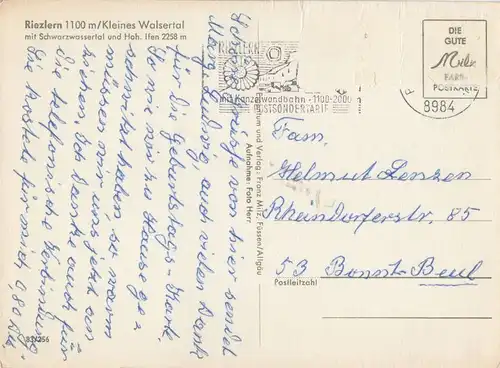 Riezlern 1100 m/Kleines Walsertal
mit Schwarzwassertal und Hoh. Ifen 2258 m
Schöne Grüße von hier sendet
Marg. Ludwig, auch vielen Dank
für die Geburtstags-Karte.
So wie wir zu Hause ge-
schwitzt haben, so warm
müssen wir uns jetzt an-
ziehen. Ich danke auch für
die telefonische Verbindung
die kostete für mich 0,80 DM.
831256
Eigentum und Verlag: Franz Milz, Füssen/Allgäu
Aufnahme: Foto Herr
RIEZLERN
mit Kanzelwandbahn · 1100-2000
POSTSONDERTARIF
DIE
GUTE
Milz
FARB-
POSTKARTE
8984
Fam.
Helmut Lenzen
Rheindorferstr. 85
53 Bonn-Beuel
Postleitzahl